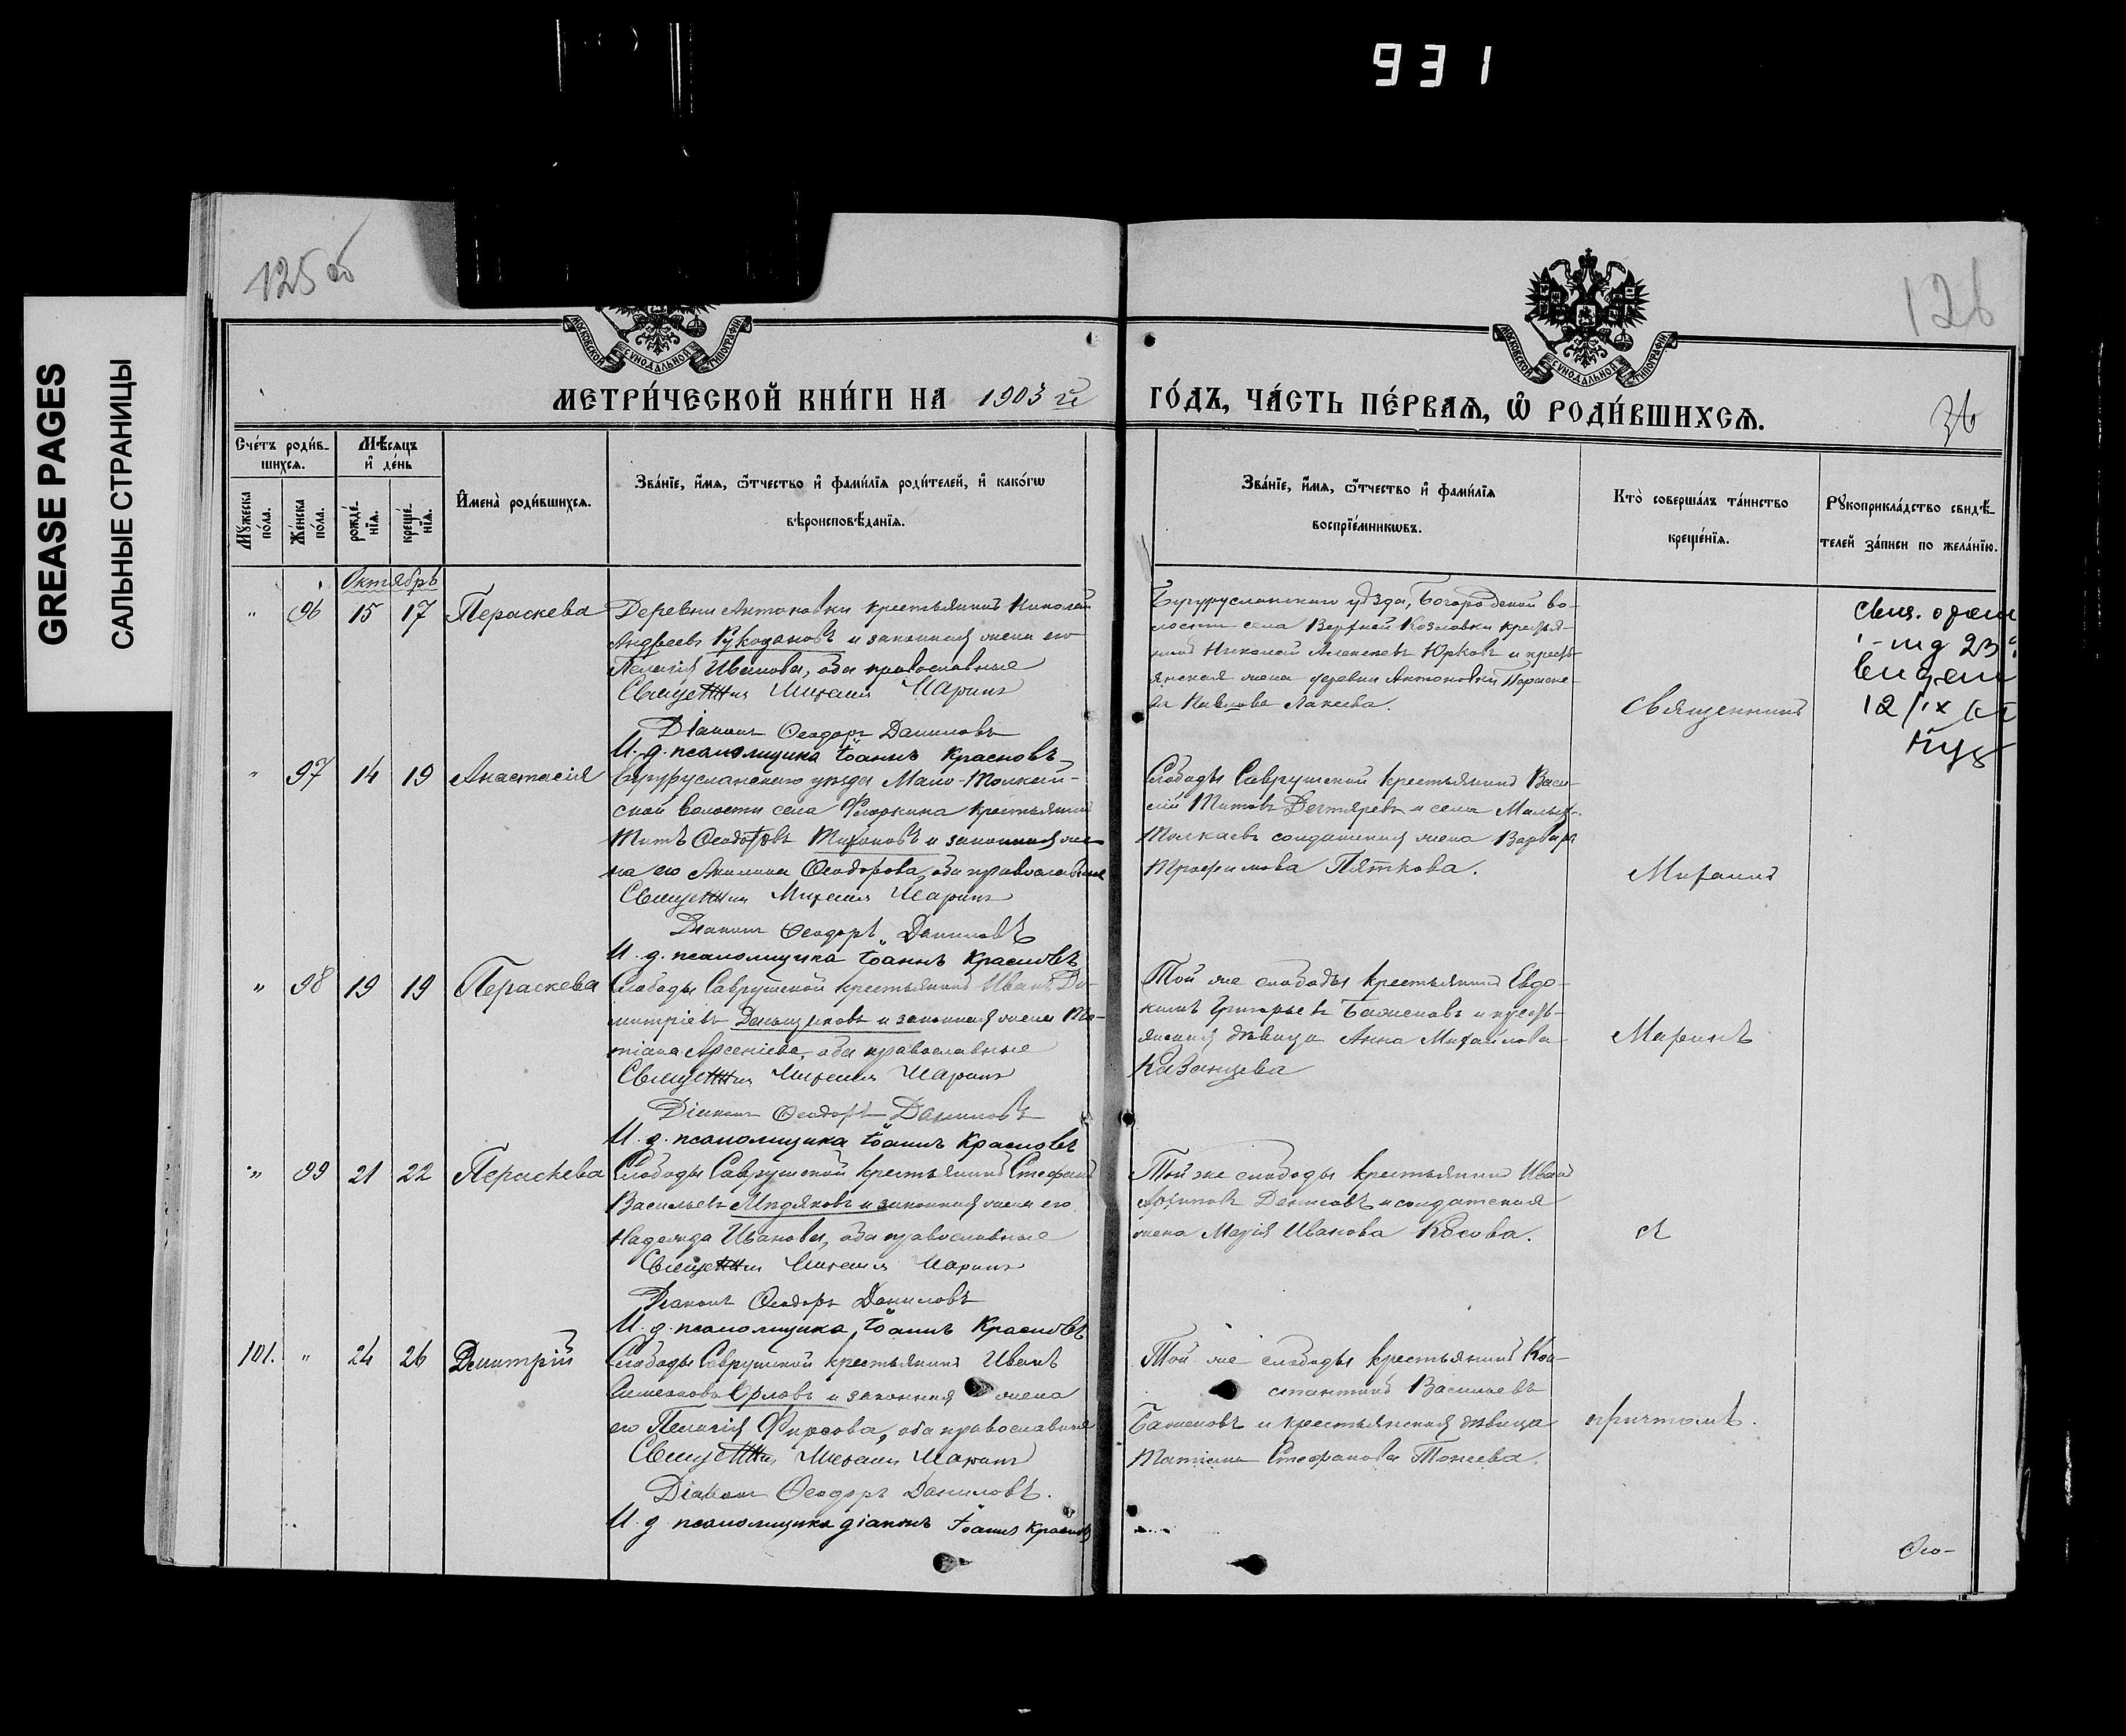 931
GREASE PAGES
САЛЬНЫЕ СТРАНИЦЫ
125 об
126
36
МОСКОВСКОЙ СѴНОДАЛЬНОЙ ТИПОГРАФІИ
МОСКОВСКОЙ СѴНОДАЛЬНОЙ ТИПОГРАФІИ
МЕТРИ́ЧЕСКОЙ КНИ́ГИ НА 1903 й ГО́ДЪ, ЧА́СТЬ ПЕ́РВАѦ, Ѡ҆ РОДИ́ВШИХСѦ.
Сче́тъ роди́в-
шихсѧ.
Мѣ́сѧцъ
и҆ де́нь
Мꙋ́жеска по́ла.
Же́нска по́ла.
рожде́-
нїѧ.
креще́-
нїѧ.
И҆мена̀ роди́вшихсѧ.
Зва́нїе, и҆́мѧ, ѻ҆́тчество и҆ фами́лїѧ роди́телей, и҆ како́гѡ
вѣроисповѣ́данїѧ.
Зва́нїе, и҆́мѧ, ѻ҆́тчество и҆ фами́лїѧ
воспрїе́мникѡвъ.
Кто̀ соверша́лъ та́инство
креще́нїѧ.
Рꙋкоприкла́дство свидѣ́-
телей за́писи по жела́нїю.
Октябрь
" 96 15 17 Пераскева
Деревни Антоновки крестьянинъ Николай
Андреевъ Рукодановъ и законная жена его
Пелагія Иванова, оба православные
Священникъ Михаилъ Маринъ
Діаконъ Ѳеодоръ Даниловъ
И. д. псаломщика Іоаннъ Красновъ
Бугурусланскаго уѣзда, Богородской во-
лости села Верхней Козловки крестья-
нинъ Николай Алексеевъ Юрковъ и кресть-
янская жена деревни Антоновки Параске-
ва Павлова Лакеева.
Священникъ
12/IX
" 97 14 19 Анастасія
Бугурусланскаго уѣзда Мало-Толкай-
ской волости села Фёдоркина крестьянинъ
Титъ Ѳеодоровъ Тихоновъ и законная же-
на его Акилина Ѳеодорова, оба православные
Священникъ Михаилъ Маринъ
Діаконъ Ѳеодоръ Даниловъ
И. д. псаломщика Іоаннъ Красновъ
Слободы Саврушской крестьянинъ Васи-
лій Титовъ Дегтяревъ и села Малыхъ-
Толкаевъ солдатская жена Варвара
Трофимова Пяткова.
Михаилъ
" 98 19 19 Пераскева
Слободы Саврушской крестьянинъ Иванъ Ди-
митріевъ Деньщиковъ и законная жена Та-
тіана Арсеніева, оба православные
Священникъ Михаилъ Маринъ
Діаконъ Ѳеодоръ Даниловъ
И. д. псаломщика Іоаннъ Красновъ
Той же слободы крестьянинъ Евдо-
кимъ Григорьевъ Баженовъ и кресть-
янская дѣвица Анна Михайлова
Казанцева
Маринъ
" 99 21 22 Пераскева
Слободы Саврушской крестьянинъ Стефанъ
Васильевъ Мидяковъ и законная жена его
Надежда Иванова, оба православные
Священникъ Михаилъ Маринъ
Діаконъ Ѳеодоръ Даниловъ
И. д. псаломщика Іоаннъ Красновъ
Той же слободы крестьянинъ Иванъ
Денисовъ и солдатская
жена Марія Иванова Косова.
съ
101. " 24 26 Димитрій
Слободы Саврушской крестьянинъ Иванъ
Симеоновъ Орловъ и законная жена
его Пелагія Фирсова, оба православные
Священникъ Михаилъ Маринъ
Діаконъ Ѳеодоръ Даниловъ.
И. д псаломщика діаконъ Іоаннъ Красновъ
Той же слободы крестьянинъ Кон-
стантинъ Васильевъ
Баженовъ и крестьянская дѣвица
Татіана Стефанова Токеева.
причтомъ.